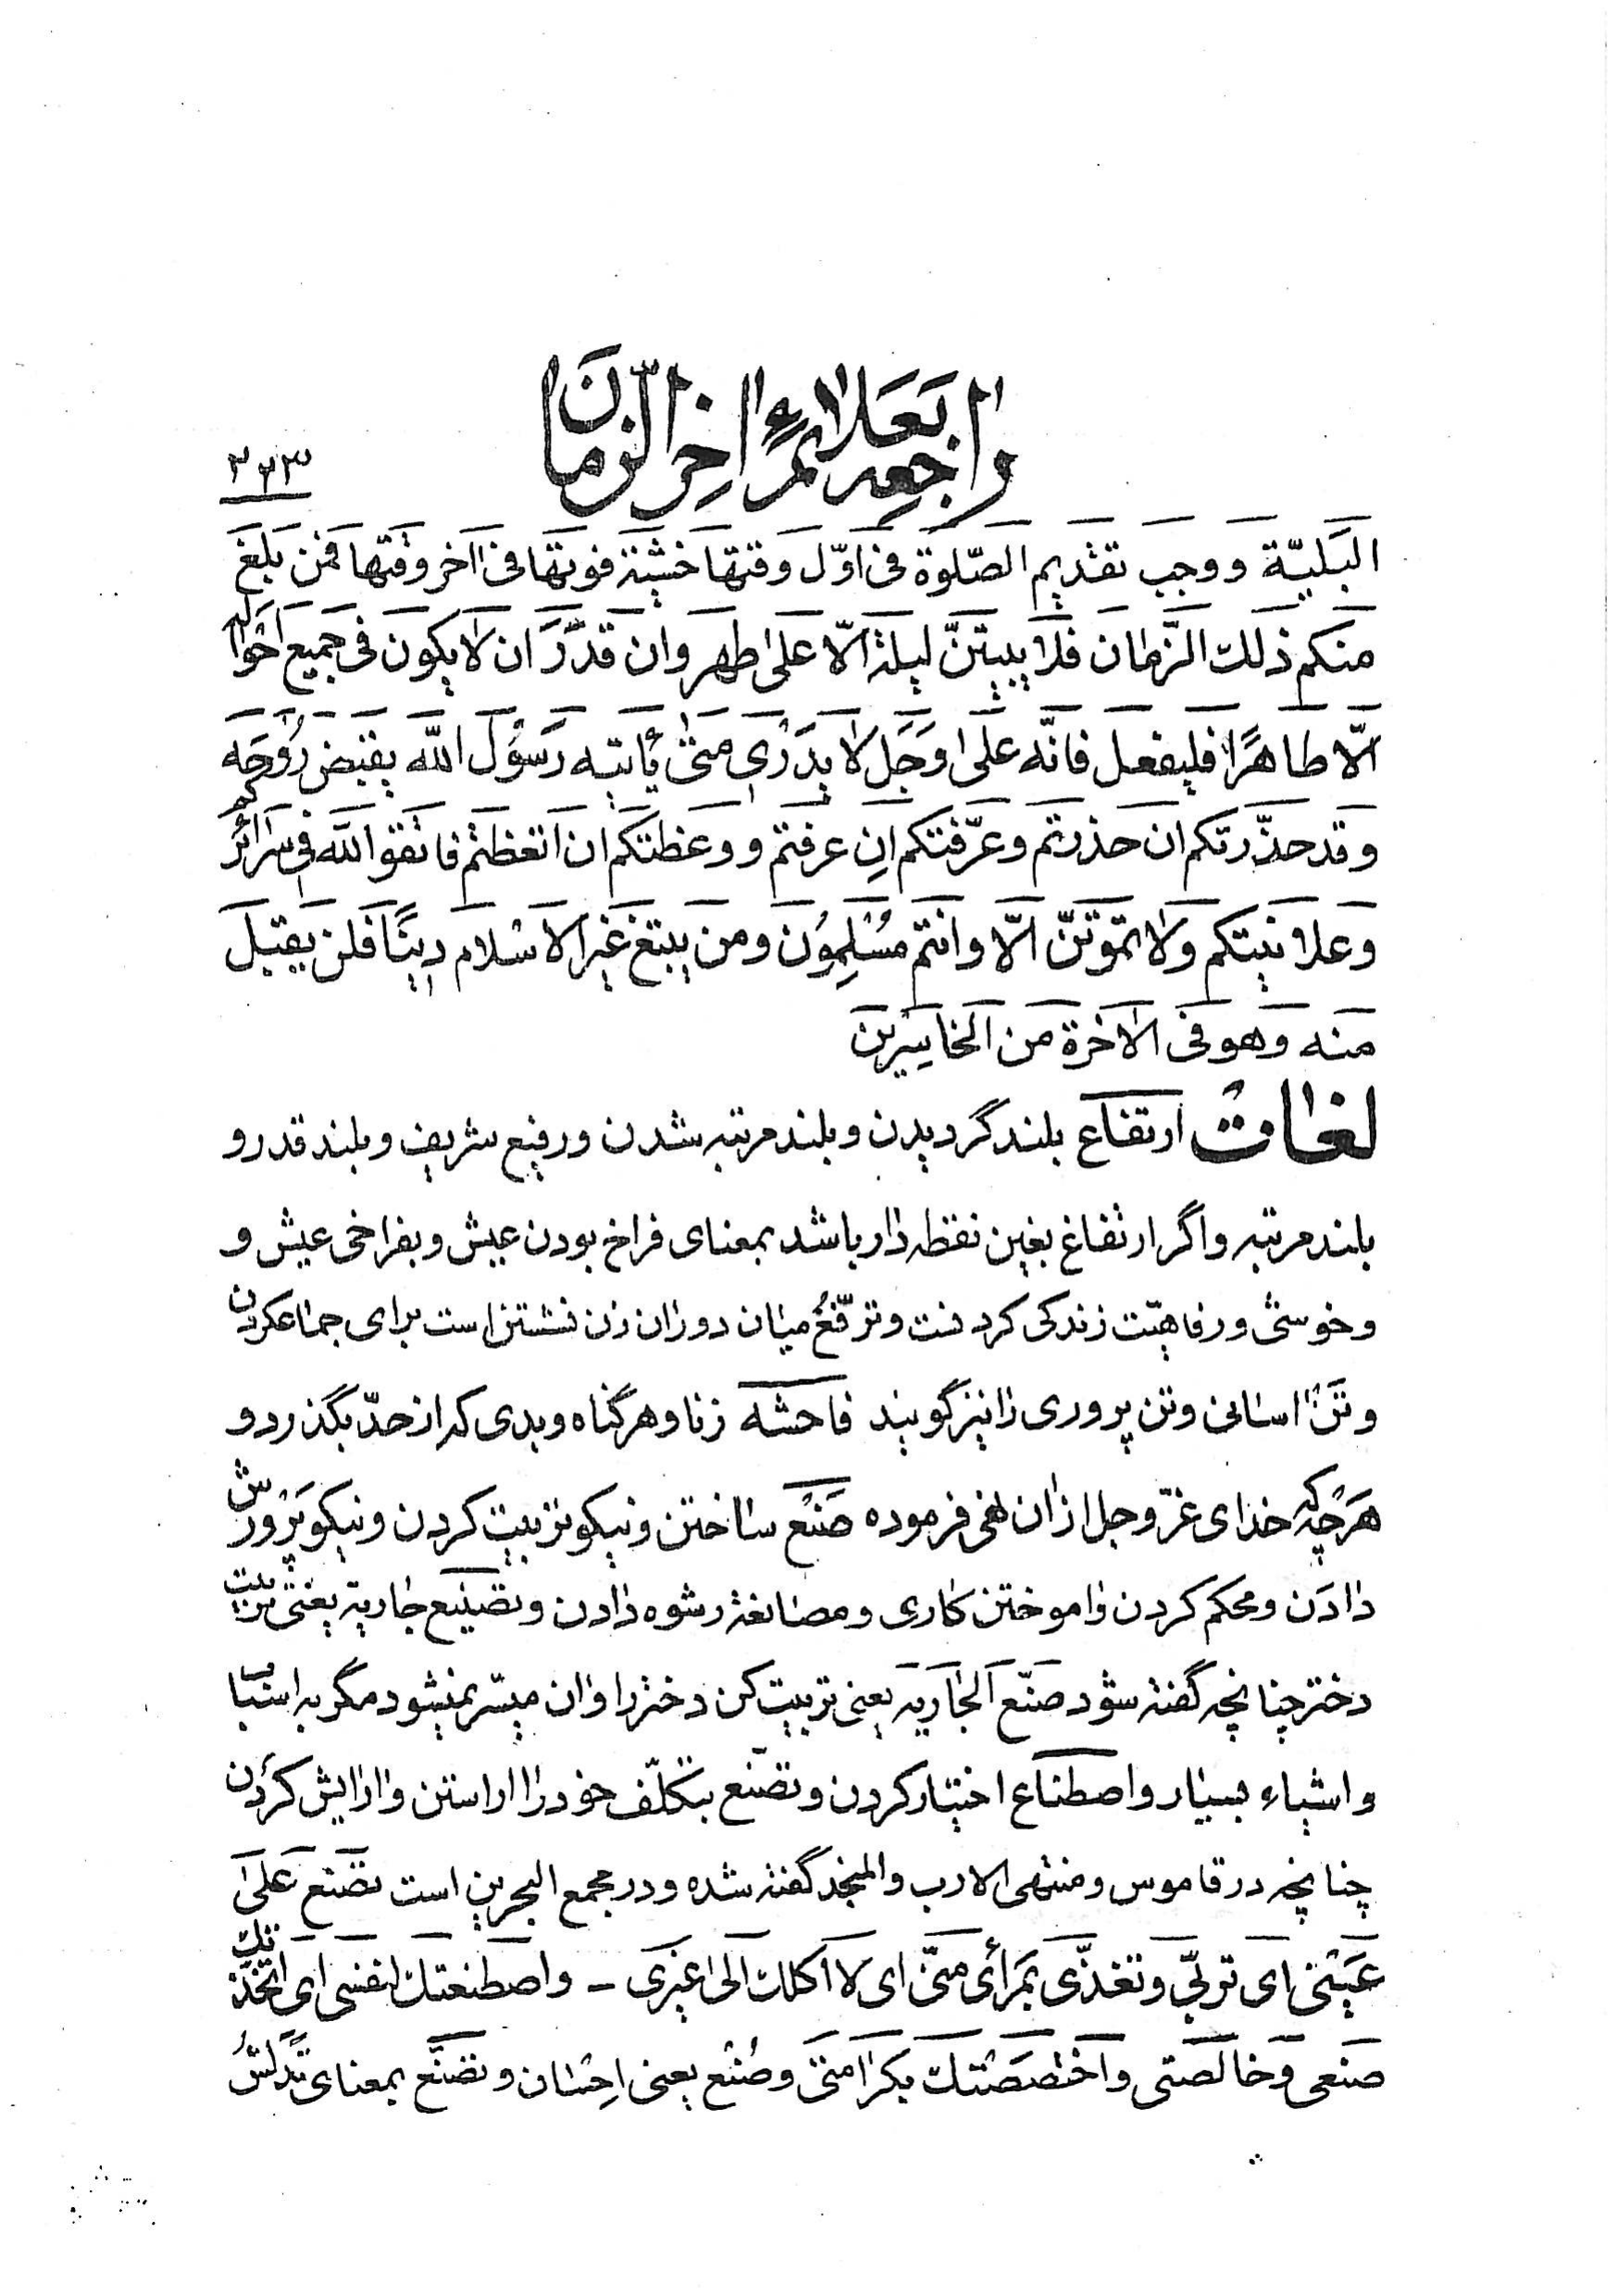 راجعه بعلائم اخر الزمان
۲۶۳
البَليّة ووجب تقديم الصّلوة فى اوّل وقتها خشية فوتها فى اخر وقتها فمن بلغ
منكم ذلك الزّمان فلا يبيتنّ ليلة الّا على طهر وان قدّرَ ان لا يكون فى جميع احواله
الّا طاهرًا فليفعل فانّه على وَجَل لا يدرى متى يأتيه رسُول الله يقبض رُوحَه
وقد حذّرتكم ان حذرتم وعرّفتكم انِ عرفتم ووعظتكم ان اتعظتم فاتقوا الله فى سرائركم
وعلانيتكم ولا تموتنّ الّا وانتم مُسْلِمُون ومن يبتغ غير الاسْلام دينًا فلن يقبل
منه وهو فى الاخرة من الخاسِرين
لغات ارتفاع بلند گرديدن و بلند مرتبه شدن و رفيع شريف و بلند قدر و
بلند مرتبه و اگر ارتفاغ بغين نقطه دار باشد بمعناى فراخ بودن عيش و بفراخى عيش و
و خوشى و رفاهيّت زندگى كردنست و ترفّغُ ميان دو ران زن نشستن است براى جماع كردن
و تنْ اسانى و تن پرورى را نيز گويند فاحشه زنا و هر گناه و بدى كه از حدّ بگذرد و
هرچه كه خداى عزّ و جل از ان نهى فرموده صَنْع ساختن و نيكو تربيت كردن و نيكو پَرْورش
دادَن و محكم كردن و اموختن كارى و مصانعة رشوه دادن و تصنيع جارية يعنى تربيت
دختر چنانچه گفته شود صنّع الجاريه يعنى تربيت كن دختر را و ان ميسّر نميشود مگر به اسباب
و اشياء بسيار و اصطناع اختيار كردن و تصنّع بتكلّف خود را اراستن و ارايش كردن
چنانچه در قاموس و منتهى الارب و المنجد گفته شده و در مجمع البحرين است تصنع عَلى
عَيْنى اى تربّى و تغذّى بمرأى منّى اى لا اكلك الى غيرى - و اصطنعتك لنفسى اى اتّخذتك
صنعى و خالصتى و اختصَصْتك بكرامتى و صُنْع يعنى احِسْان و تصنَّع بمعناى تدَلّسُ